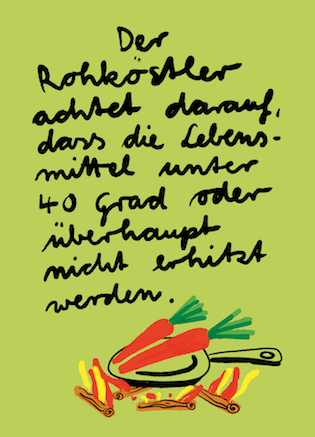 Der
Rohköstler
achtet darauf,
dass die Lebens-
mittel unter
40 Grad oder
überhaupt
nicht erhitzt
werden.